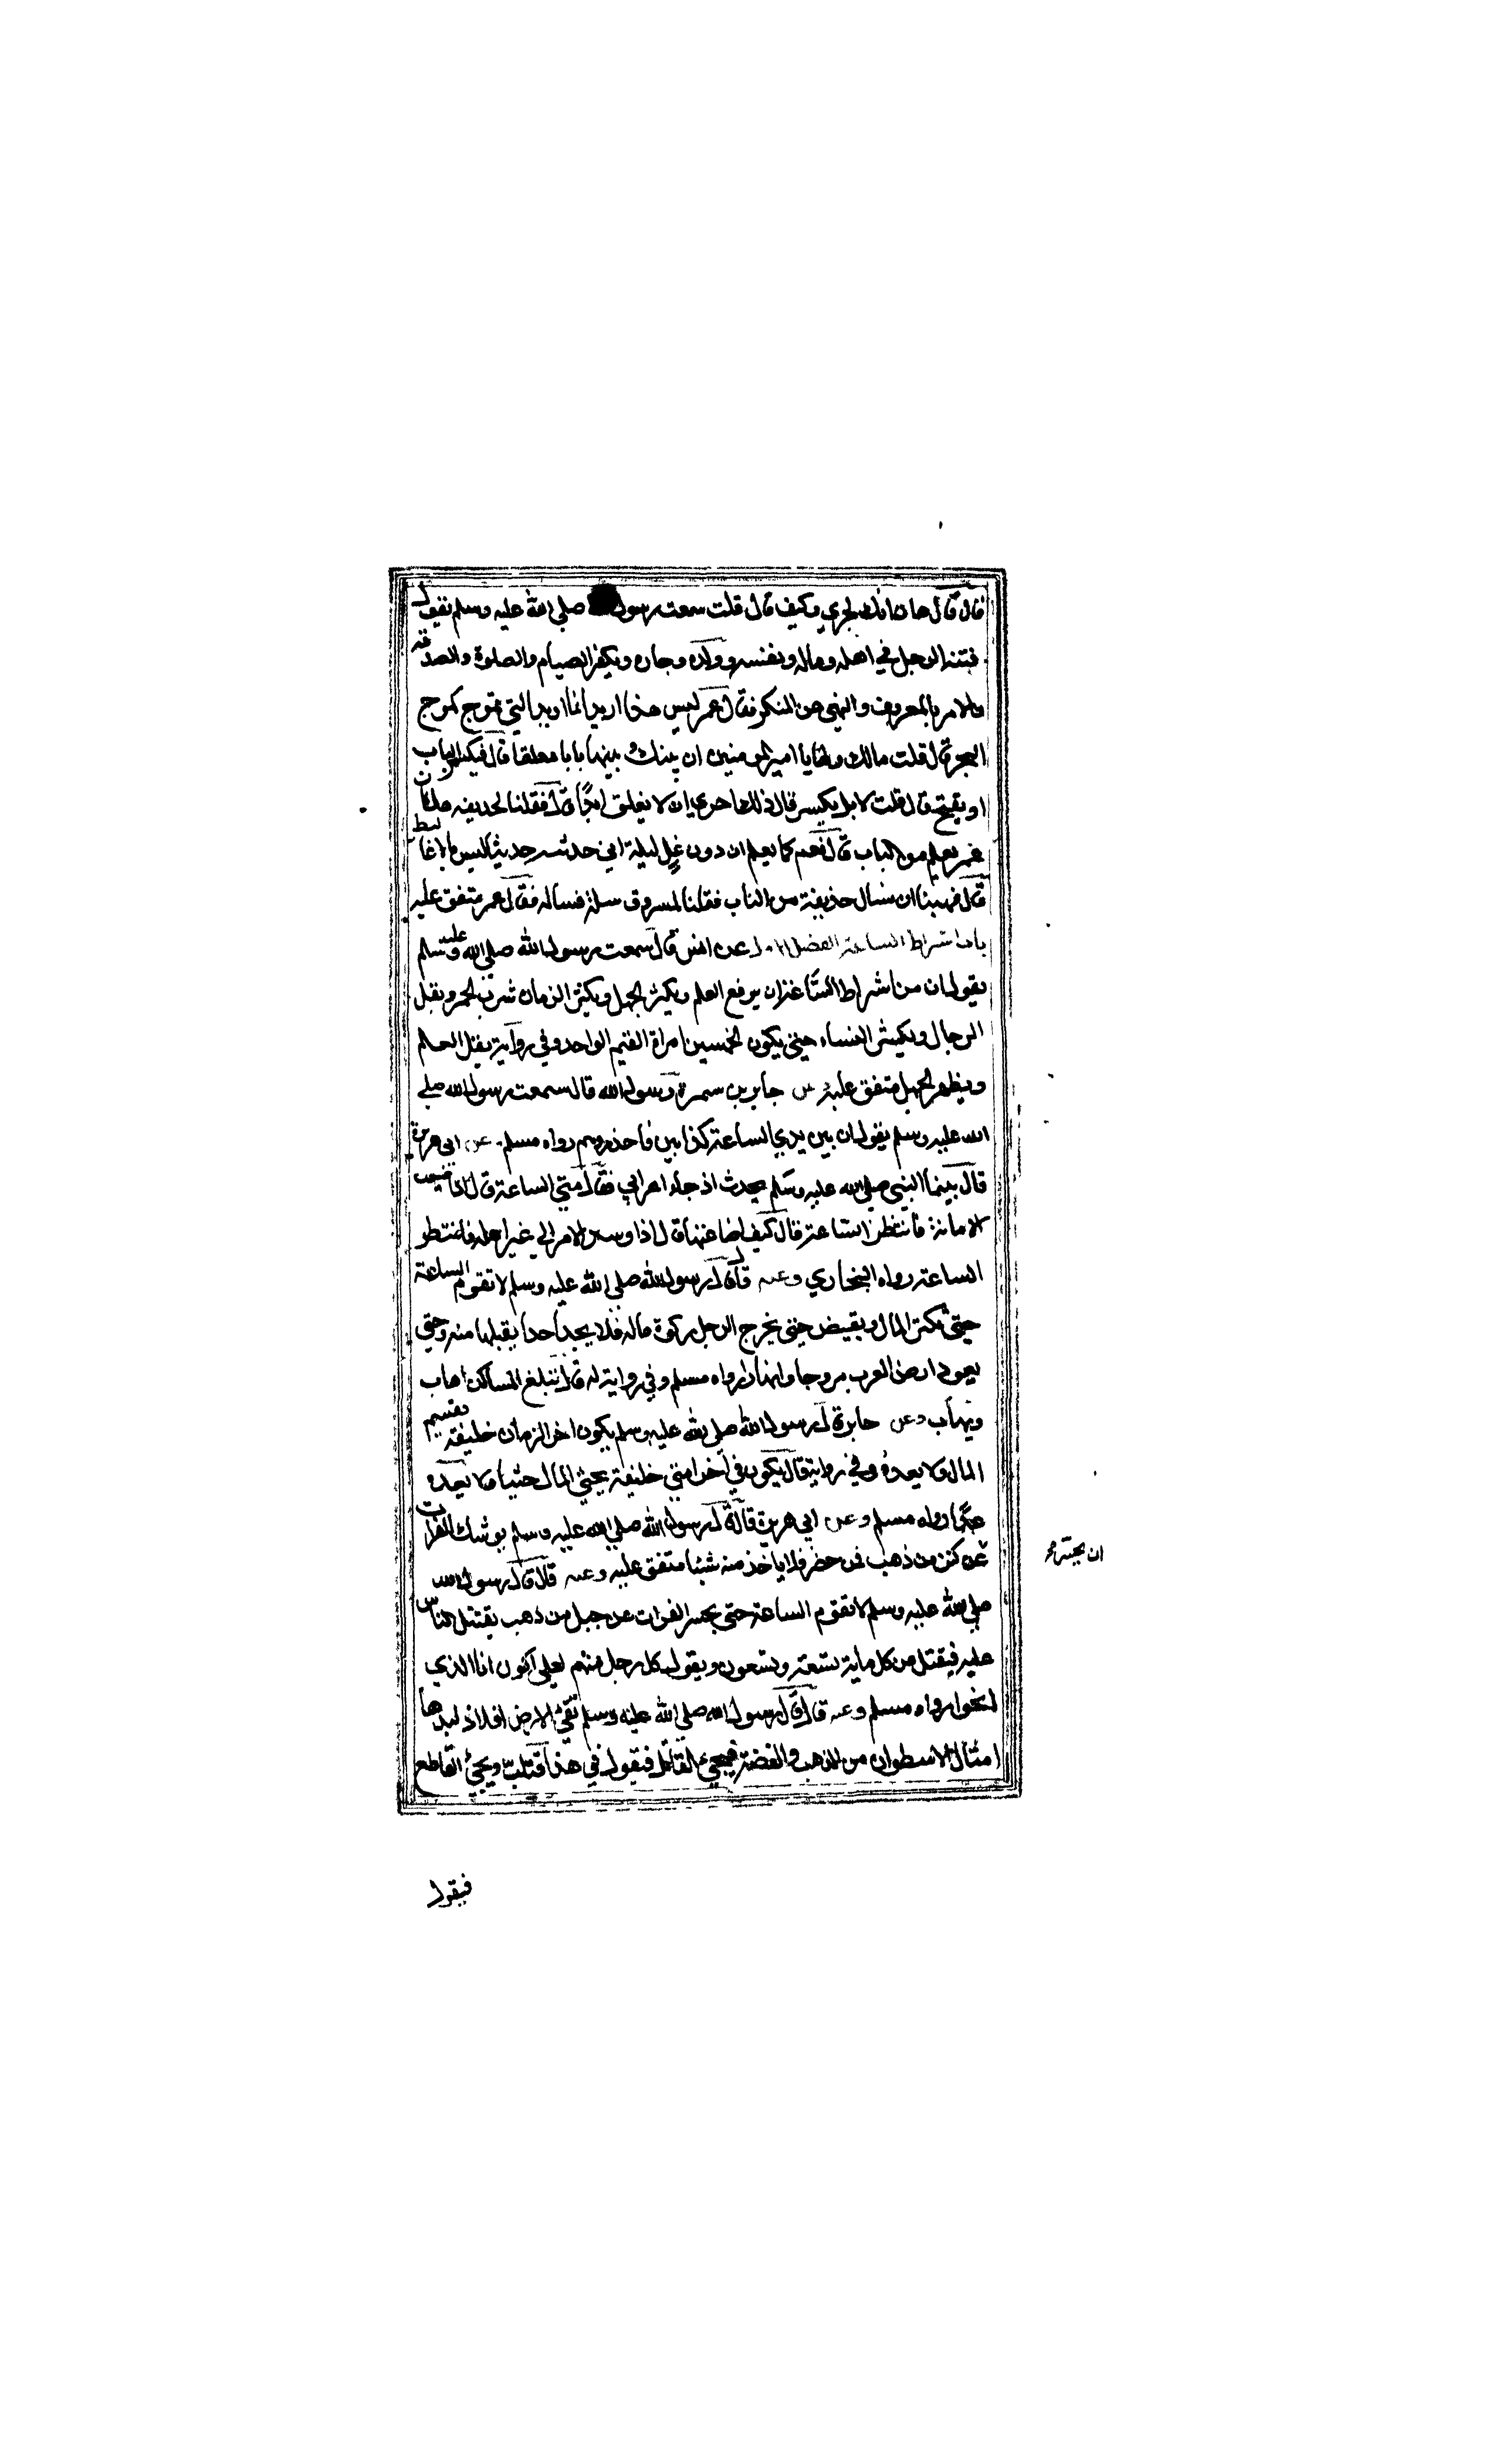 فقال قال هات انك لجري وكيف قال قلت سمعت رسول صلي الله عليه وسلم يقول
فتنة الرجل في اهله وماله ونفسه وولده وجاره ويكفر الصيام والصلوة والصدقة
والامر بالمعروف والنهي عن المنكر فقال عمر ليس هذا اريد انما اريد التي تموج كموج
البحر قال قلت مالك ولها يا امير المومنين ان بينك وبينها بابا مغلقا قال فيكسر الباب
او يفتح قال قلت لا بل يكسر قال ذلك احري ان لا يغلق ابدا قال فقلنا لحذيفه هل كان
عمر يعلم من الباب قال نعم كما يعلم ان دون غد ليلة اني حدثته حديثا ليس بالاغاليط
قال فهبنا ان نسال حذيفة من الباب فقلنا لمسروق سله فساله فقال عمر متفق عليه
باب اشراط الساعة الفصل الاول عن انس قال سمعت رسول الله صلي الله عليه وسلم
يقول ان من اشراط الساعة ان يرفع العلم ويكثر الجهل ويكثر الزنا شرب الخمر ويقل
الرجال ويكثر النساء حتي يكون لخمسين امراة القيم الواحد وفي رواية يقل العلم
ويظهر الجهل متفق عليه عن جابر بن سمرة رسول الله قال سمعت رسول الله صلي
الله عليه وسلم يقول ان بين يدي الساعة كذابين فاحذروهم رواه مسلم عن ابي هريرة
قال بينما النبي صلي الله عليه وسلم يحدث اذ جاء اعرابي فقال متي الساعة قال اذا ضيعت
الامانة فانتظر الساعة قال كيف اضاعتها قال اذا وسد الامر الي غير اهله فانتظر
الساعة رواه البخاري وعنه قال قال رسول الله صلي الله عليه وسلم لا تقوم الساعة
حتي يكثر المال ويفيض حتي يخرج الرجل زكوة ماله فلا يجد احدا يقبلها منه وحتي
يعود ارض العرب مروجا وانهارا رواه مسلم وفي رواية له قال تبلغ المساكن اهاب
ويهاب وعن جابر قال رسول الله صلي الله عليه وسلم يكون اخر الزمان خليفة يقسم
المال ولا يعده وفي رواية قال يكون في آخر امتي خليفة يحثي المال حثيا ولا يعده
عدا رواه مسلم وعن ابي هريرة قال قال رسول الله صلي الله عليه وسلم يوشك الفرات
عن كنز من ذهب فمن حضر فلا ياخذ منه شيئا متفق عليه وعنه قال قال رسول الله
ان يحسر
صلي الله عليه وسلم لا تقوم الساعة حتي يحسر الفرات عن جبل من ذهب يقتتل الناس
عليه فيقتل من كل ماية تسعة وتسعون ويقول كل رجل منهم لعلي اكون انا الذي
انجو رواه مسلم وعنه قال قال رسول الله صلي الله عليه وسلم تقئ الارض افلاذ كبدها
امثال الاسطوان من الذهب والفضة فيجئ القاتل فيقول في هذا قتلت ويجئ القاطع
فيقول